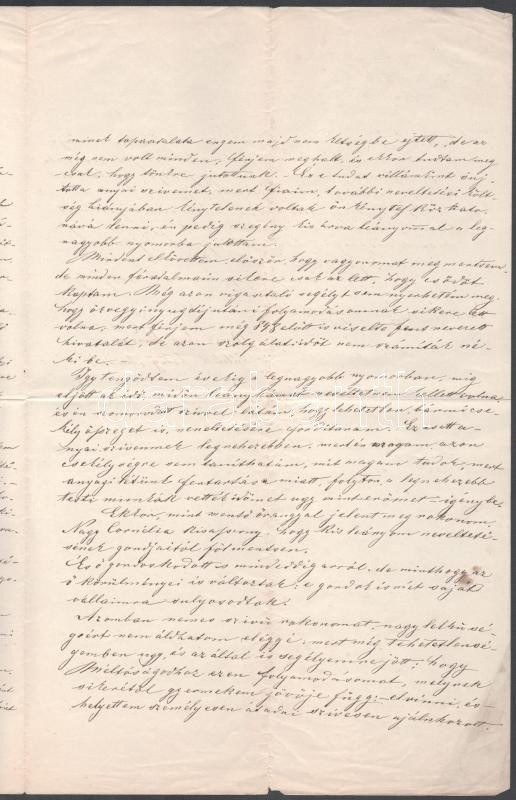 minek tapasztalata engem majd nem kétségbe ejtett, de az
még nem volt minden, férjem meghalt, és ekkor tudtam meg
csak, hogy tönkre jutottunk. – Ez a tudat villámként súj-
totta anyai szivemet, mert fiaim, további neveltetési költ-
ség hiányában kénytelenek voltak önkénytes köz kato-
nává lenni, én pedig szegény kis korú leányommal a leg-
nagyobb nyomorba jutottam.
Mindent elkövettem először, hogy vagyonomat megmentsem,
de minden fáradalmaim sikere csak az lett, hogy csődöt
kaptam. Még azon vigasztaló segélyt sem nyerhettem meg,
hogy özvegyi nyugdíj utáni folyamodásomnak sikere lett
volna, mert férjem még 1848 előtt is viselte nevezett
hivatalát, de azon szolgálati időt nem számíták né-
ki be. –
Igy tengődtem évekig legnagyobb nyomorban, mig
eljött az idő, midőn leánykámat neveltetnem kellett volna,
és én szomorodott szivvel látám, hogy lehetetlen bármi cse-
kély összeget is, neveltetésére fordítanom. Ez esett a-
nyai szivemnek legnehezebben, mert én magam, azon
csekélységre sem taníthatám, mit magam tudok, mert
anyagi létünk fentartása miatt, folyton a legnehezebb
testi munkák vették időmet ugy mint erőmet – igénybe.
Ekkor, mint mentő őrangyal jelent meg rokonom,
Nagy Cornélia kisasszony, hogy kis leányom neveltetési-
sének gondjaitól fölmentsen.
És ő gondoskodott is mind eddig arról, de minthogy az
ő körülményei is változtak, e gondok ismét saját
vállaimra sulyosodtak.
Azonban nemes szivü rokonomat, nagylelküsé-
géért nem áldhatom eléggé, mert még tehetetlensé-
gemben ugy, és az által is segélyemre jött, hogy
Méltóságodhoz ezen folyamodásomat, melynek
sikerétől gyermekem jövője függ – elvinni, és
helyettem személyesen átadni szivesen ajánlkozott.